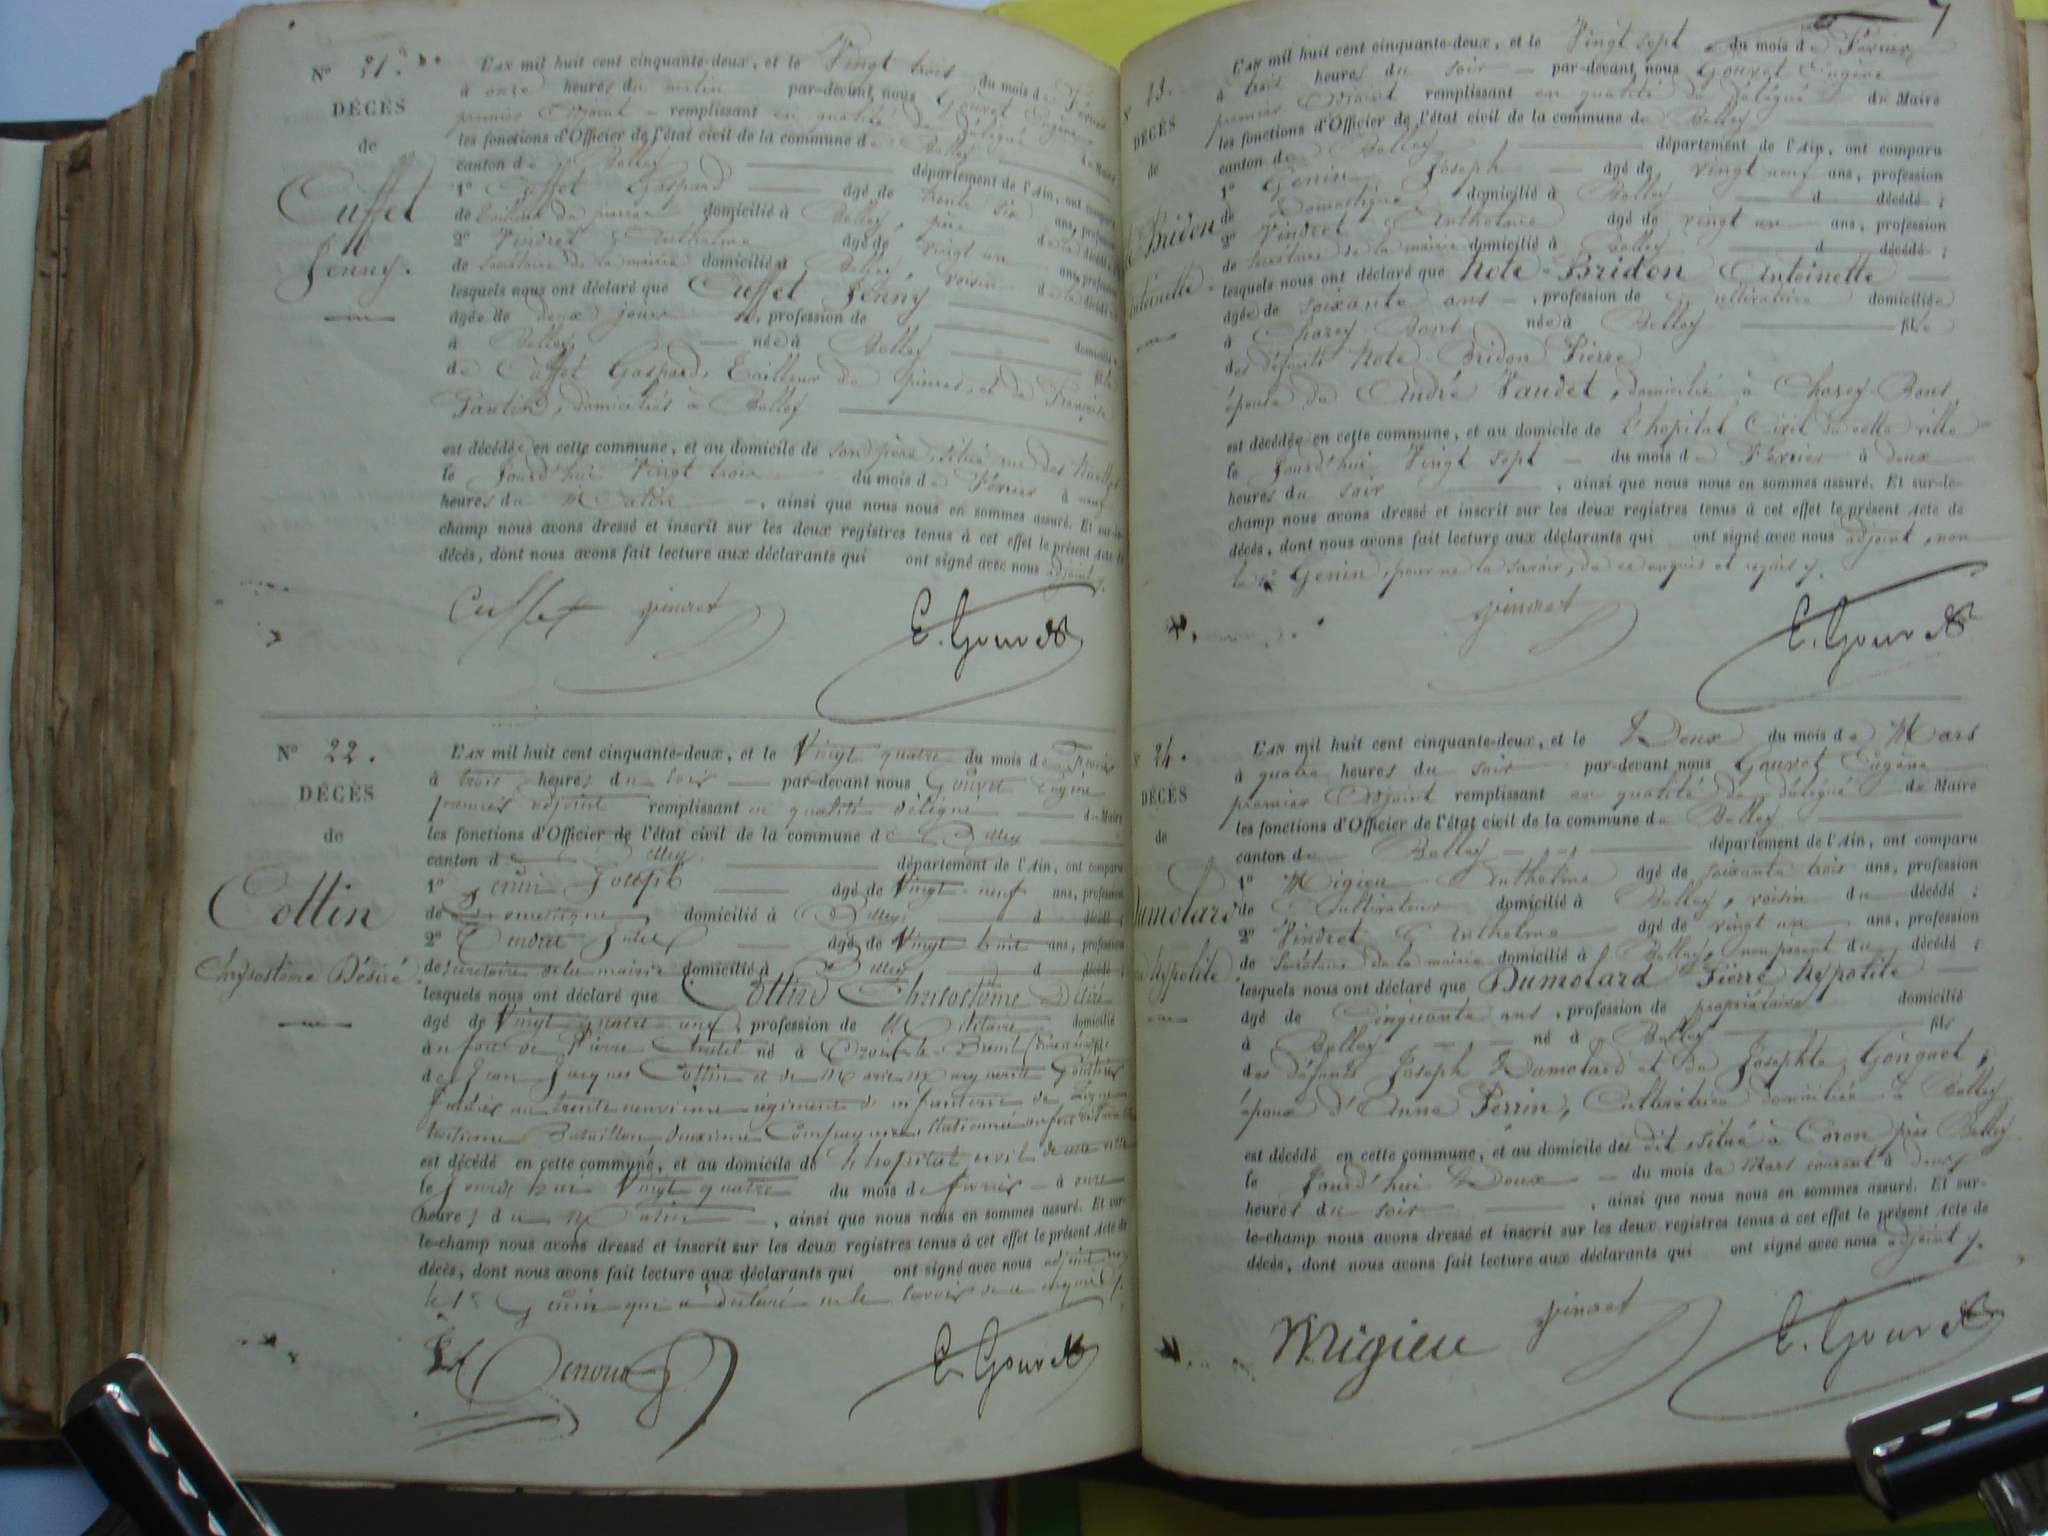 N° 21.
DÉCÈS
de
Cuffet
Jenny.
L'AN mil huit cent cinquante-deux, et le Vingt trois du mois de Février
à onze heures du matin par-devant nous Gouvet Eugène
premier adjoint remplissant en qualité de délégué du Maire
les fonctions d'Officier de l'état civil de la commune de Belley
canton de Belley département de l'Ain, ont comparu
1° Cuffet Gaspard âgé de trente six ans, profession
de tailleur de pierres domicilié à Belley, père de la décédée
2° Vindret Anthelme âgé de vingt un ans, profession
de secrétaire de la mairie domicilié à Belley, voisin de la décédée
lesquels nous ont déclaré que Cuffet Jenny
âgée de deux jours, profession de domiciliée
à Belley née à Belley fille
de Cuffet Gaspard, tailleur de pierres, et de Françoise
Pantin, domiciliés à Belley
est décédée en cette commune, et au domicile de son père, situé rue des
le Jourd'hui Vingt trois du mois de Février à neuf
heures du Matin, ainsi que nous nous en sommes assuré. Et sur-le-
champ nous avons dressé et inscrit sur les deux registres tenus à cet effet le présent Acte de
décès, dont nous avons fait lecture aux déclarants qui ont signé avec nous adjoint.
Cuffet Vindret E. Gouvet
N° 22.
DÉCÈS
de
Collin
Chrysostôme Désiré
L'AN mil huit cent cinquante-deux, et le Vingt quatre du mois de Février
à trois heures du soir par-devant nous Gouvet Eugène
premier adjoint remplissant en qualité délégué du Maire
les fonctions d'Officier de l'état civil de la commune de Belley
canton de Belley département de l'Ain, ont comparu
1° Genin Joseph âgé de Vingt neuf ans, profession
de Domestique domicilié à Belley d décédé ;
2° âgé de Vingt huit ans, profession
de secrétaire de la mairie domicilié à Belley d décédé ;
lesquels nous ont déclaré que Collin Chrisostôme Désiré
âgé de Vingt quatre ans, profession de Militaire domicilié
au fort de Pierre Chatel né à
de Jean Jacques Collin et de Marie Marguerite
fusilier au trente neuvième régiment d'infanterie de Ligne
troisième Bataillon deuxième Compagnie, stationnée au fort
est décédé en cette commune, et au domicile de l'hopital civil de cette ville
le Jourd'hui Vingt quatre du mois de février à onze
heures du Matin, ainsi que nous nous en sommes assuré. Et sur-
le-champ nous avons dressé et inscrit sur les deux registres tenus à cet effet le présent Acte de
décès, dont nous avons fait lecture aux déclarants qui ont signé avec nous adjoint non
le Sr Genin qui a déclaré ne le savoir de ce enquis
E. Gouvet
7
N° 23.
DÉCÈS
de
Bridon
Antoinette.
L'AN mil huit cent cinquante-deux, et le Vingt sept du mois de Février
à trois heures du soir par-devant nous Gouvet Eugène
premier Adjoint remplissant en qualité de délégué du Maire
les fonctions d'Officier de l'état civil de la commune de Belley
canton de Belley département de l'Ain, ont comparu
1° Genin Joseph âgé de vingt neuf ans, profession
de Domestique domicilié à Belley d décédé ;
2° Vindret Anthelme âgé de vingt un ans, profession
de secrétaire de la mairie domicilié à Belley d décédé ;
lesquels nous ont déclaré que Note-Bridon Antoinette
âgée de soixante ans, profession de cultivatrice domiciliée
à Chazey Bons née à Belley fille
des défunts Note-Bridon Pierre
épouse de André Vaudet, domicilié à Chazey-Bons,
est décédée en cette commune, et au domicile de l'hopital Civil de cette ville
le Jourd'hui Vingt sept du mois de Février à deux
heures du soir, ainsi que nous nous en sommes assuré. Et sur-le-
champ nous avons dressé et inscrit sur les deux registres tenus à cet effet le présent Acte de
décès, dont nous avons fait lecture aux déclarants qui ont signé avec nous adjoint, non
le Sr Genin, pour ne le savoir, de ce enquis et requis.
Vindret E. Gouvet
N° 24.
DÉCÈS
de
Dumolard
hypolite
L'AN mil huit cent cinquante-deux, et le Deux du mois de Mars
à quatre heures du soir par-devant nous Gouvet Eugène
premier Adjoint remplissant en qualité de délégué du Maire
les fonctions d'Officier de l'état civil de la commune de Belley
canton de Belley département de l'Ain, ont comparu
1° Migieu Anthelme âgé de soixante trois ans, profession
de Cultivateur domicilié à Belley, voisin du décédé ;
2° Vindret Anthelme âgé de vingt un ans, profession
de secrétaire de la mairie domicilié à Belley, non parent du décédé ;
lesquels nous ont déclaré que Dumolard Pierre hypolite
âgé de Cinquante ans, profession de propriétaire domicilié
à Belley né à Belley fils
des défunts Joseph Dumolard et de Josephte Gonguet,
époux d'Anne Perrin, Cultivatrice domiciliée à Belley
est décédé en cette commune, et au domicile du dit, situé à Coron près Belley
le Jourd'hui Deux du mois de Mars courant à deux
heures du soir, ainsi que nous nous en sommes assuré. Et sur-
le-champ nous avons dressé et inscrit sur les deux registres tenus à cet effet le présent Acte de
décès, dont nous avons fait lecture aux déclarants qui ont signé avec nous adjoint.
Migieu Vindret E. Gouvet